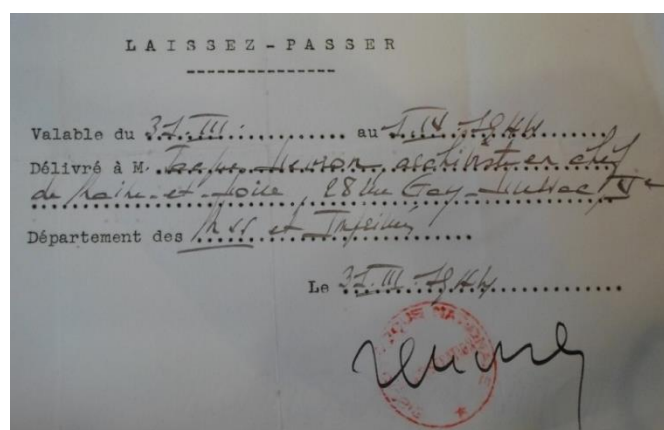 LAISSEZ-PASSER
Valable du 31.III. au 1.IV.1944
Délivré à M. Jacques archiviste en chef
de Maine-et-Loire, 28 rue Gay-Lussac Ve
Département des Mss et Imprimés
Le 31.III.1944
NATIONALE